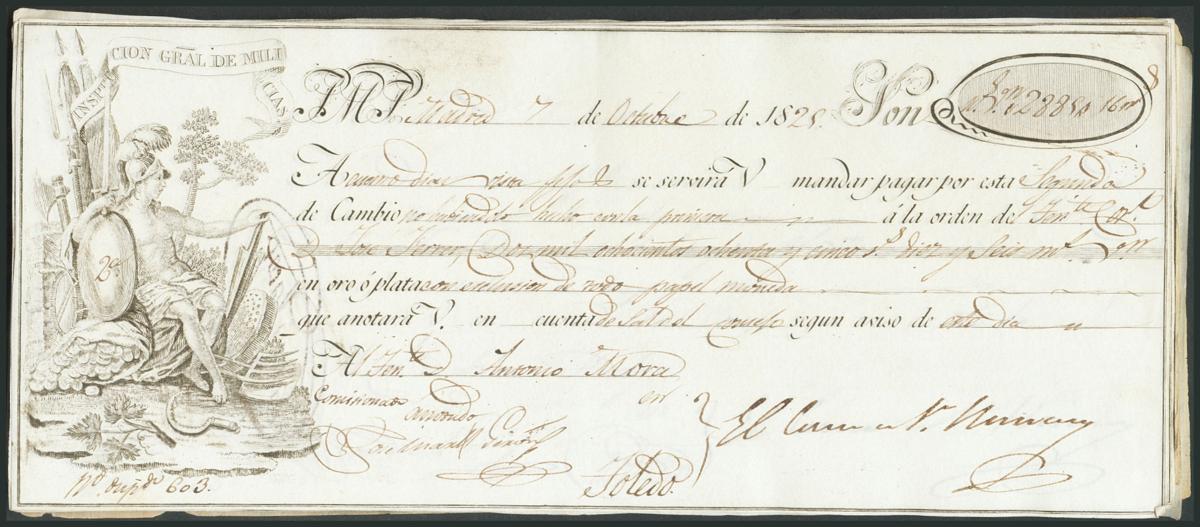 INSPECCION GRĀL DE MILICIAS
Madrid 7 de Octubre de 1825. Son 2885 16
A cuatro dias vista fijos se servirá V mandar pagar por esta Segunda
de Cambio no haviendolo hecho con la primera á la orden de Ten.te Cor.l
D Jose Ferrer, Dos mil ochocientos ochenta y cinco r.s diez y seis m.s
en oro ó plata con exclusion de todo papel moneda
que anotará V. en cuenta de segun aviso de este dia
Al D Antonio Mora
Comisionado en
anotado
Toledo.
El
2a
603.